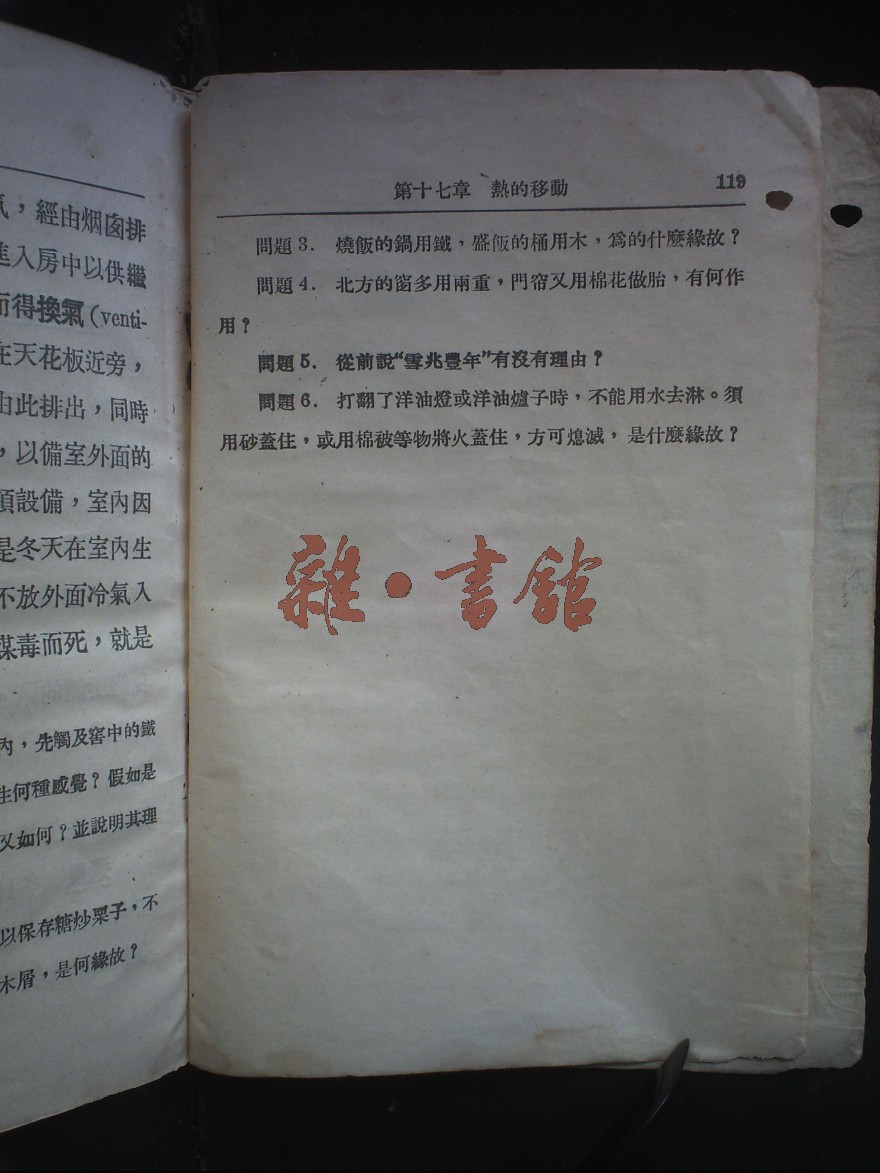 氣，經由烟囱排
進入房中以供繼
而得換氣(venti-
在天花板近旁，
由此排出，同時
，以備室外面的
項設備，室內因
是冬天在室內生
不放外面冷氣入
煤毒而死，就是
內，先觸及窖中的鐵
生何種感覺？假如是
又如何？並說明其理
以保存糖炒栗子，不
木屑，是何緣故？
第十七章 熱的移動 119
問題3. 燒飯的鍋用鐵，盛飯的桶用木，爲的什麼緣故？
問題4. 北方的窗多用兩重，門帘又用棉花做胎，有何作
用？
問題5. 從前說“雪兆豐年”有沒有理由？
問題6. 打翻了洋油燈或洋油爐子時，不能用水去淋。須
用砂蓋住，或用棉被等物將火蓋住，方可熄滅，是什麼緣故？
雜·書館